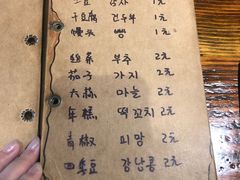 土豆 감자 1元
干豆腐 건두부 1元
馒头 빵 1元
韭菜 부추 2元
茄子 가지 2元
大蒜 마늘 2元
年糕 떡꼬치 2元
青椒 피망 2元
四季豆 강남콩 2元